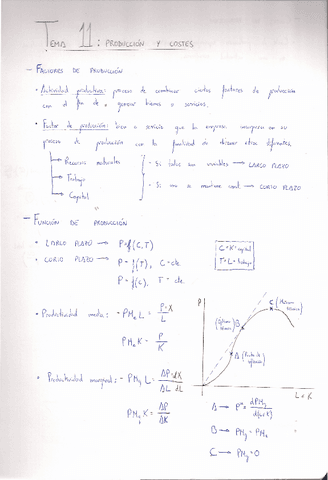 TEMA 11: PRODUCCIÓN Y COSTES
- FACTORES DE PRODUCCIÓN
• Actividad productiva: proceso de combinar varios factores de producción
con el fin de generar bienes o servicios.
• Factor de producción: bien o servicio que la empresa incorpora en su
proceso de producción con la finalidad de obtener otros diferentes.
→ Recursos naturales
→ Trabajo
→ Capital
- Si todos son variables → LARGO PLAZO
- Si uno se mantiene const → CORTO PLAZO
- FUNCIÓN DE PRODUCCIÓN
• LARGO PLAZO → P = f(C, T)
• CORTO PLAZO → P = f(T), C = cte
P = f(C), T = cte
C = K = capital
T = L = trabajo
• Productividad media: - PMe L = P·X / L
PMe K = P / K
• Productividad marginal: - PMg L = ΔP·dX / ΔL dL
PMg K = ΔP / ΔK
P
C (Máximo
(Óptimo
B
A (Punto de
inflexión)
L o K
A → P'' =
B → PMg = PMe
C → PMg = 0